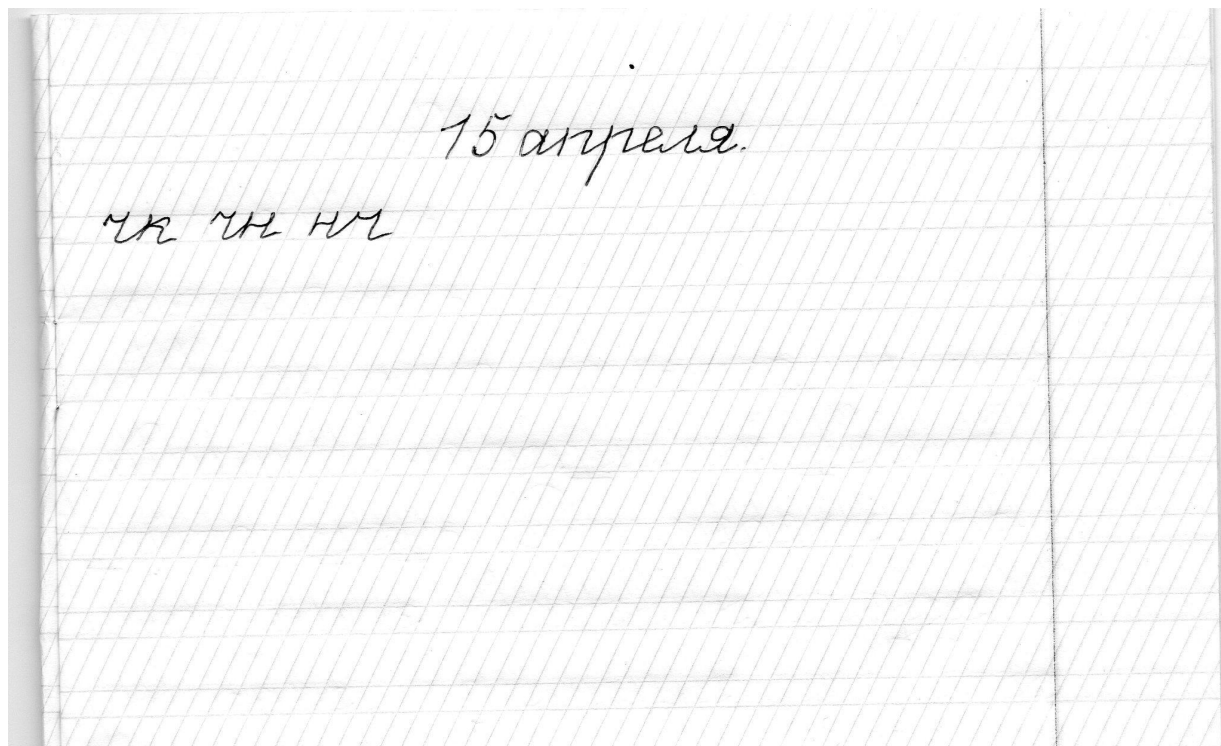 15 апреля.
чк чн нч